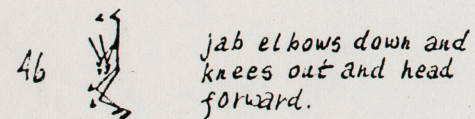 46
jab elbows down and
knees out and head
forward.